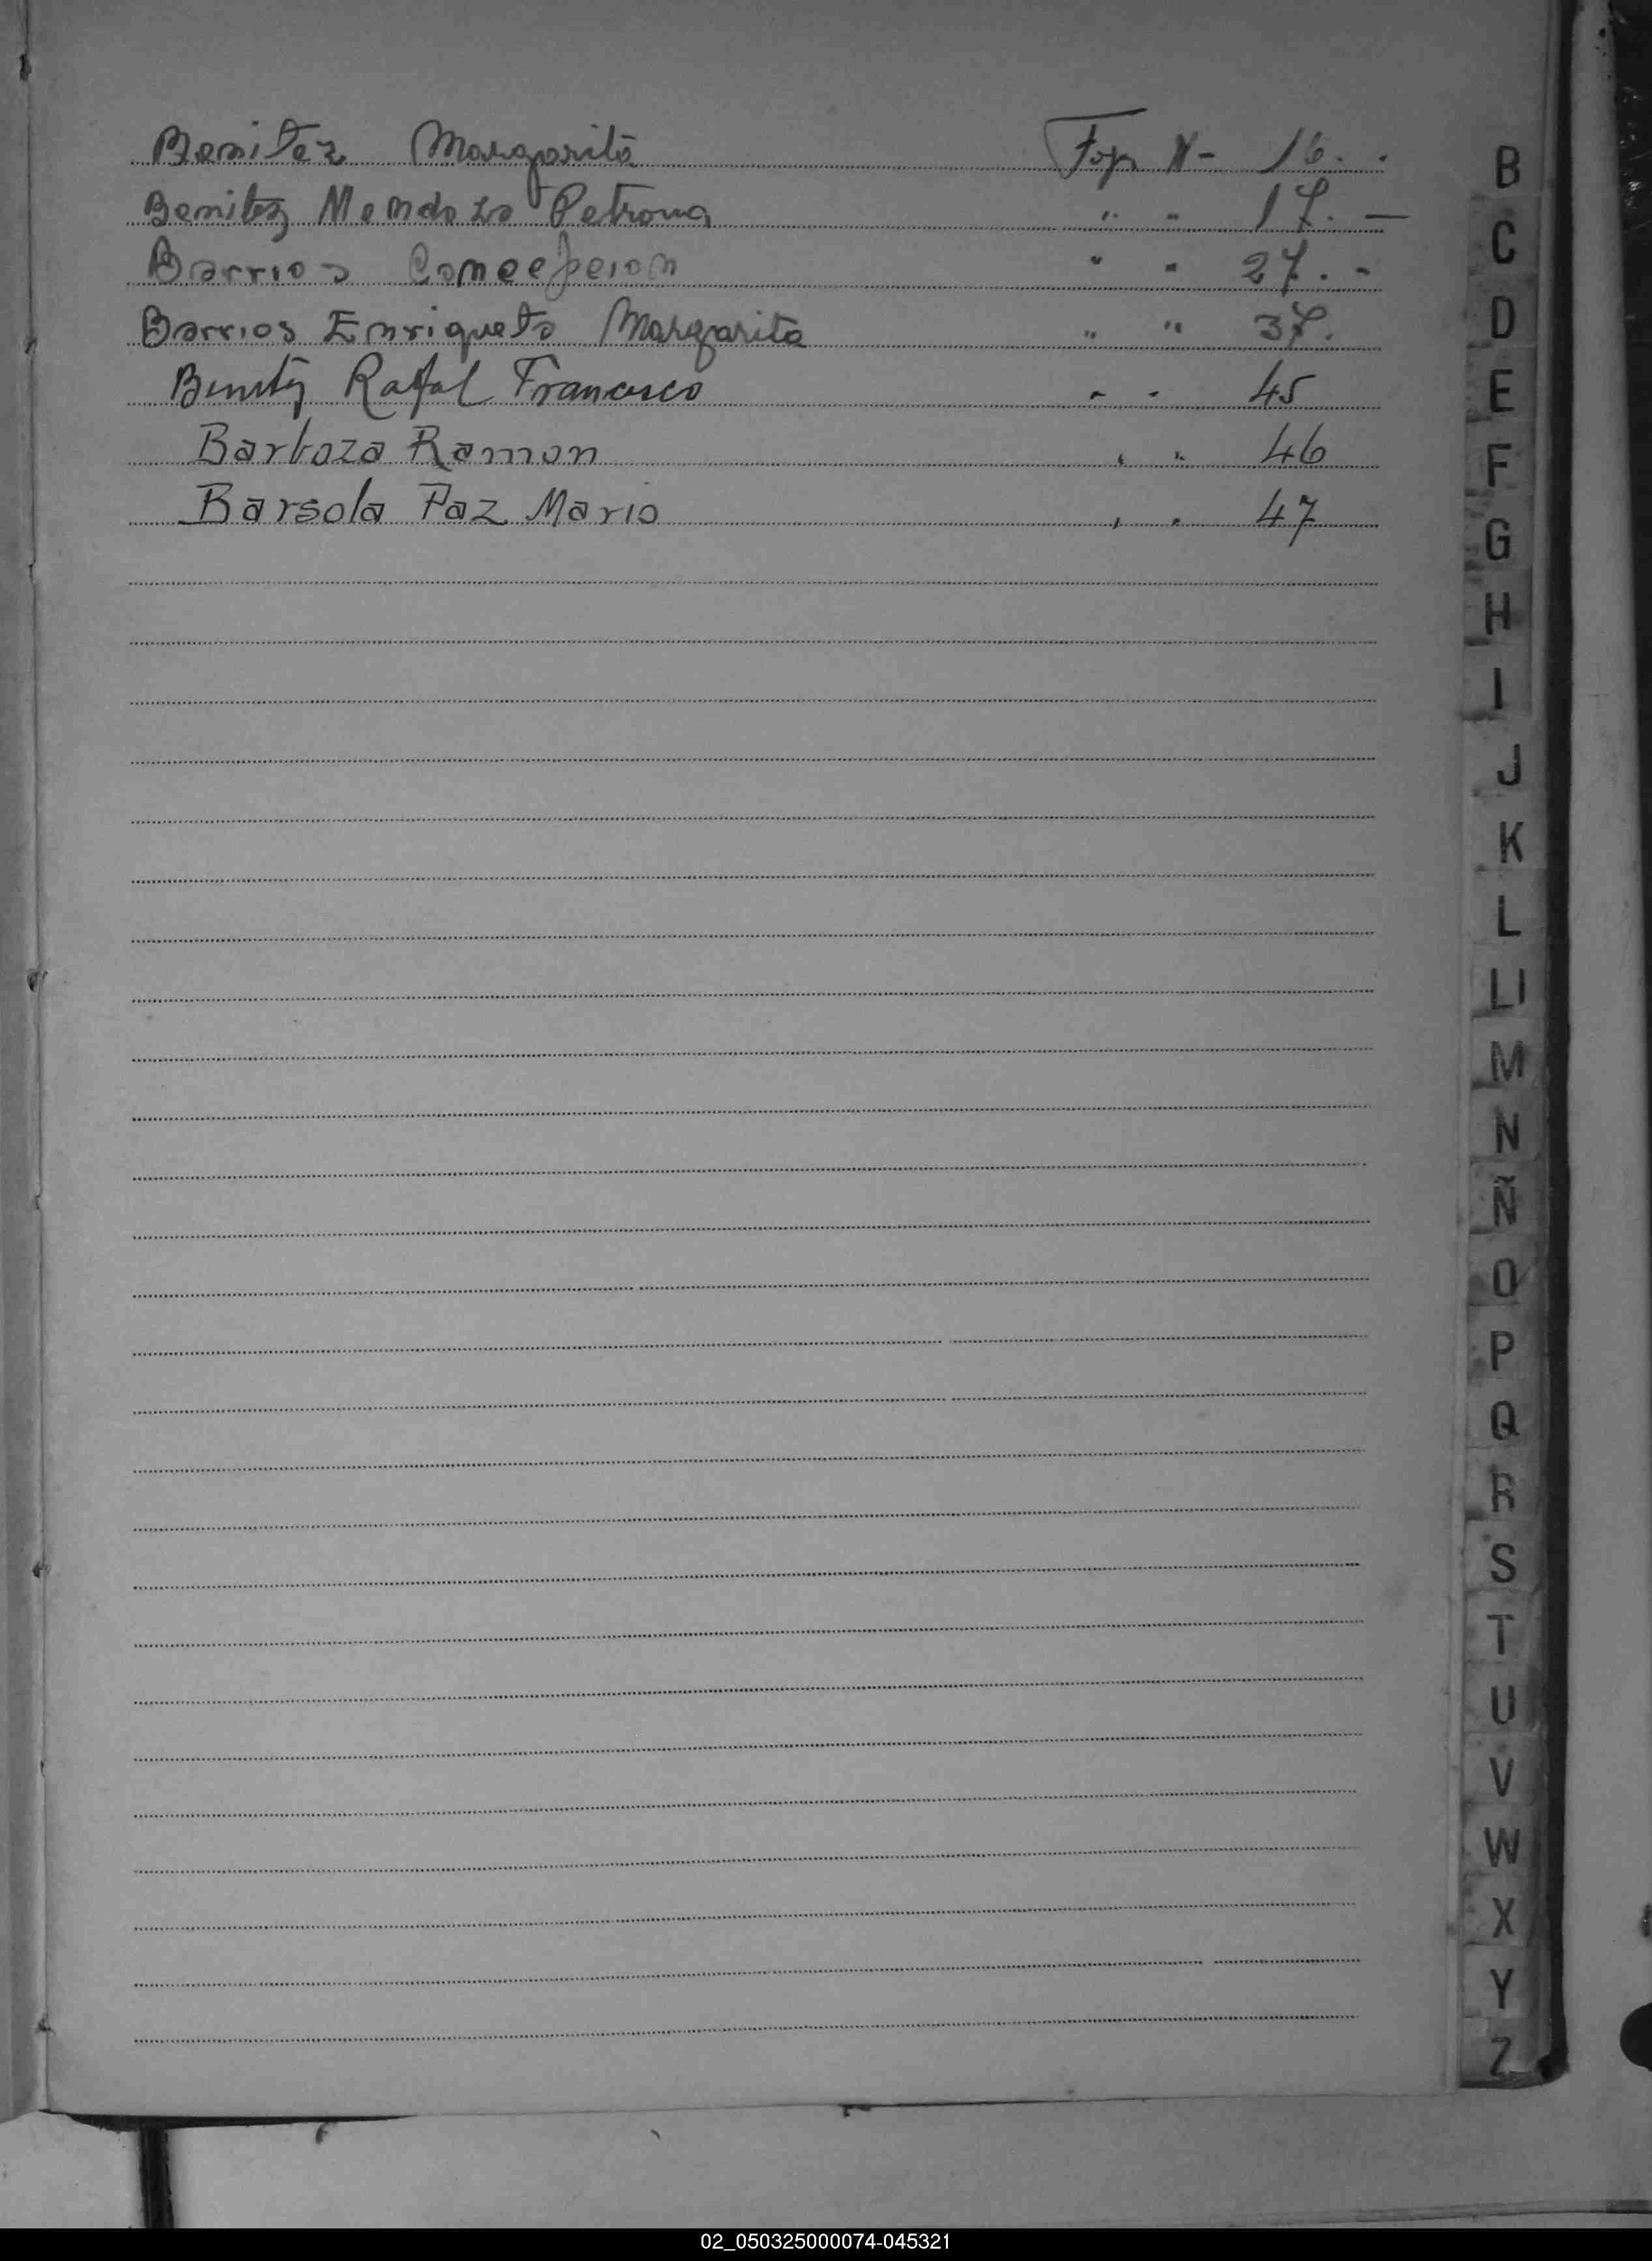 Benitez Margarita Foja N- 16. .
Benitez Mendoza Petrona " " 17. —
Barrios Concepcion " " 27. -
Barrios Enriqueta Margarita " " 37.
Benitez Rafael Francisco " " 45
Barboza Ramon " " 46
Barsola Paz Mario " " 47
B
C
D
E
F
G
H
I
J
K
L
Ll
M
N
Ñ
O
P
Q
R
S
T
U
V
W
X
Y
Z
02_050325000074-045321